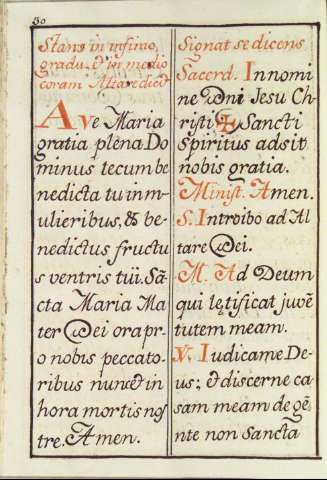 30
Stans in infimo,
gradu, & in medio
coram Altare dicit
Ave Maria
gratia plena. Do
minus tecum be
nedicta tu in m-
ulieribus, & be-
nedictus fructu
s ventris tui. Sã
cta Maria Ma
ter Dei ora pr
o nobis peccato-
ribus nunc et in
hora mortis nos
tre. Amen.
Signat se dicens
Sacerd. In nomi
ne Dni Jesu Ch-
risti ✠ Sancti
Spiritus adsit
nobis gratia.
Minist. Amen.
S. Introibo ad Al
tare Dei.
M. Ad Deum
qui lętificat juvẽ
tutem meam.
V. Iudica me De-
us; & discerne ca
sam meam de gẽ-
nte non sancta